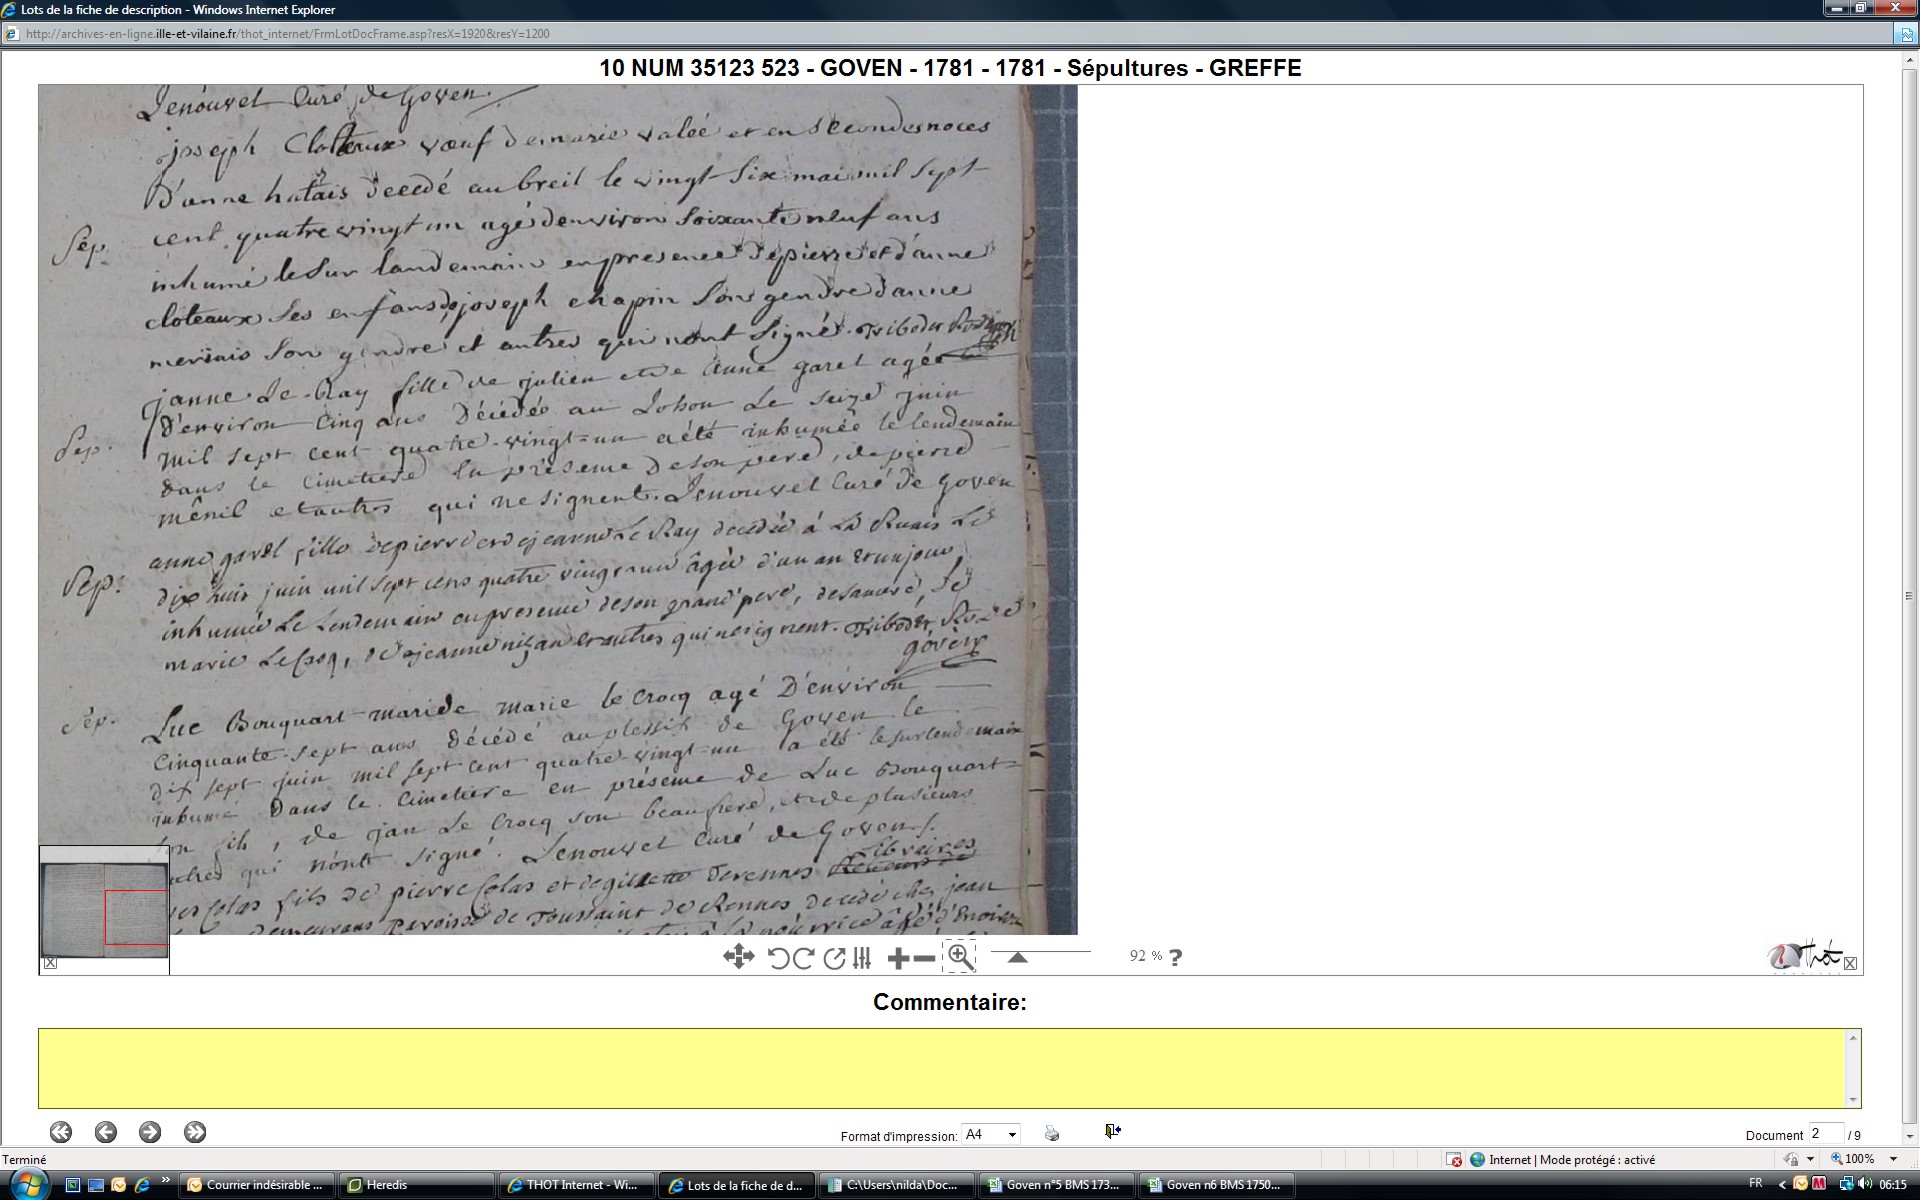 Lots de la fiche de description - Windows Internet Explorer
http://archives-en-ligne.ille-et-vilaine.fr/thot_internet/FrmLotDocFrame.asp?resX=1920&resY=1200
10 NUM 35123 523 - GOVEN - 1781 - 1781 - Sépultures - GREFFE
Lenouvel Curé de Goven.
joseph Cloteaux vœuf de marie valeé et en secondes noces
D'anne hatais decedé au breil le vingt six mai mil sept
Sep. cent quatre vingt un agé denviron soixante neuf ans
inhumé le sur landemain en presence de pierre et d'anne
cloteaux ses enfans, de joseph chapin son gendre d'anne
son gendre et autres qui nont signé. Triboder
janne Le Ray fille de julien et de anne garel agée
Sep. D'environ cinq ans Décédée au Le seize juin
mil sept cent quatre-vingt=un a été inhumée le lendemain
dans le cimetiere En présence de son pere, de pierre
ménil et autres qui ne signent. Lenouvel Curé de Goven
anne garel fille de pierre et de jeanne Le Ray decedée à La Ruais Le
Sep. dix huit juin mil sept cens quatre vingt un âgée d'un an et un jour,
inhumée Le Lendemain en presence de son grand'pere, de
marie Le Cocq, de jeanne et autres qui ne signent. Triboder
goven
Sep. Luc Bouquart mari de marie le Crocq agé D'environ
Cinquante-sept ans Décédé au plessix de Goven le
dix sept juin mil sept cent quatre-vingt=un a été le surlendemain
inhumé Dans le cimetiere en présence de Luc Bouquart=
son fils, de jan Le Crocq son beaufrere, et de plusieurs
autres qui n'ont signé. Lenouvel Curé de Goven /.
Libraires
Colas fils de pierre Colas et de gillette derennes
demeurans paroisse de Toussaint de Rennes decedé chez jean
âgé d'environ
92 % ?
Thot
Commentaire:
Format d'impression: A4
Document 2 / 9
Terminé
Internet | Mode protégé : activé
100%
Courrier indésirable ...
Heredis
THOT Internet - Wi...
Lots de la fiche de d...
C:\Users\nilda\Doc...
Goven n°5 BMS 173...
Goven n6 BMS 1750...
FR
06:15